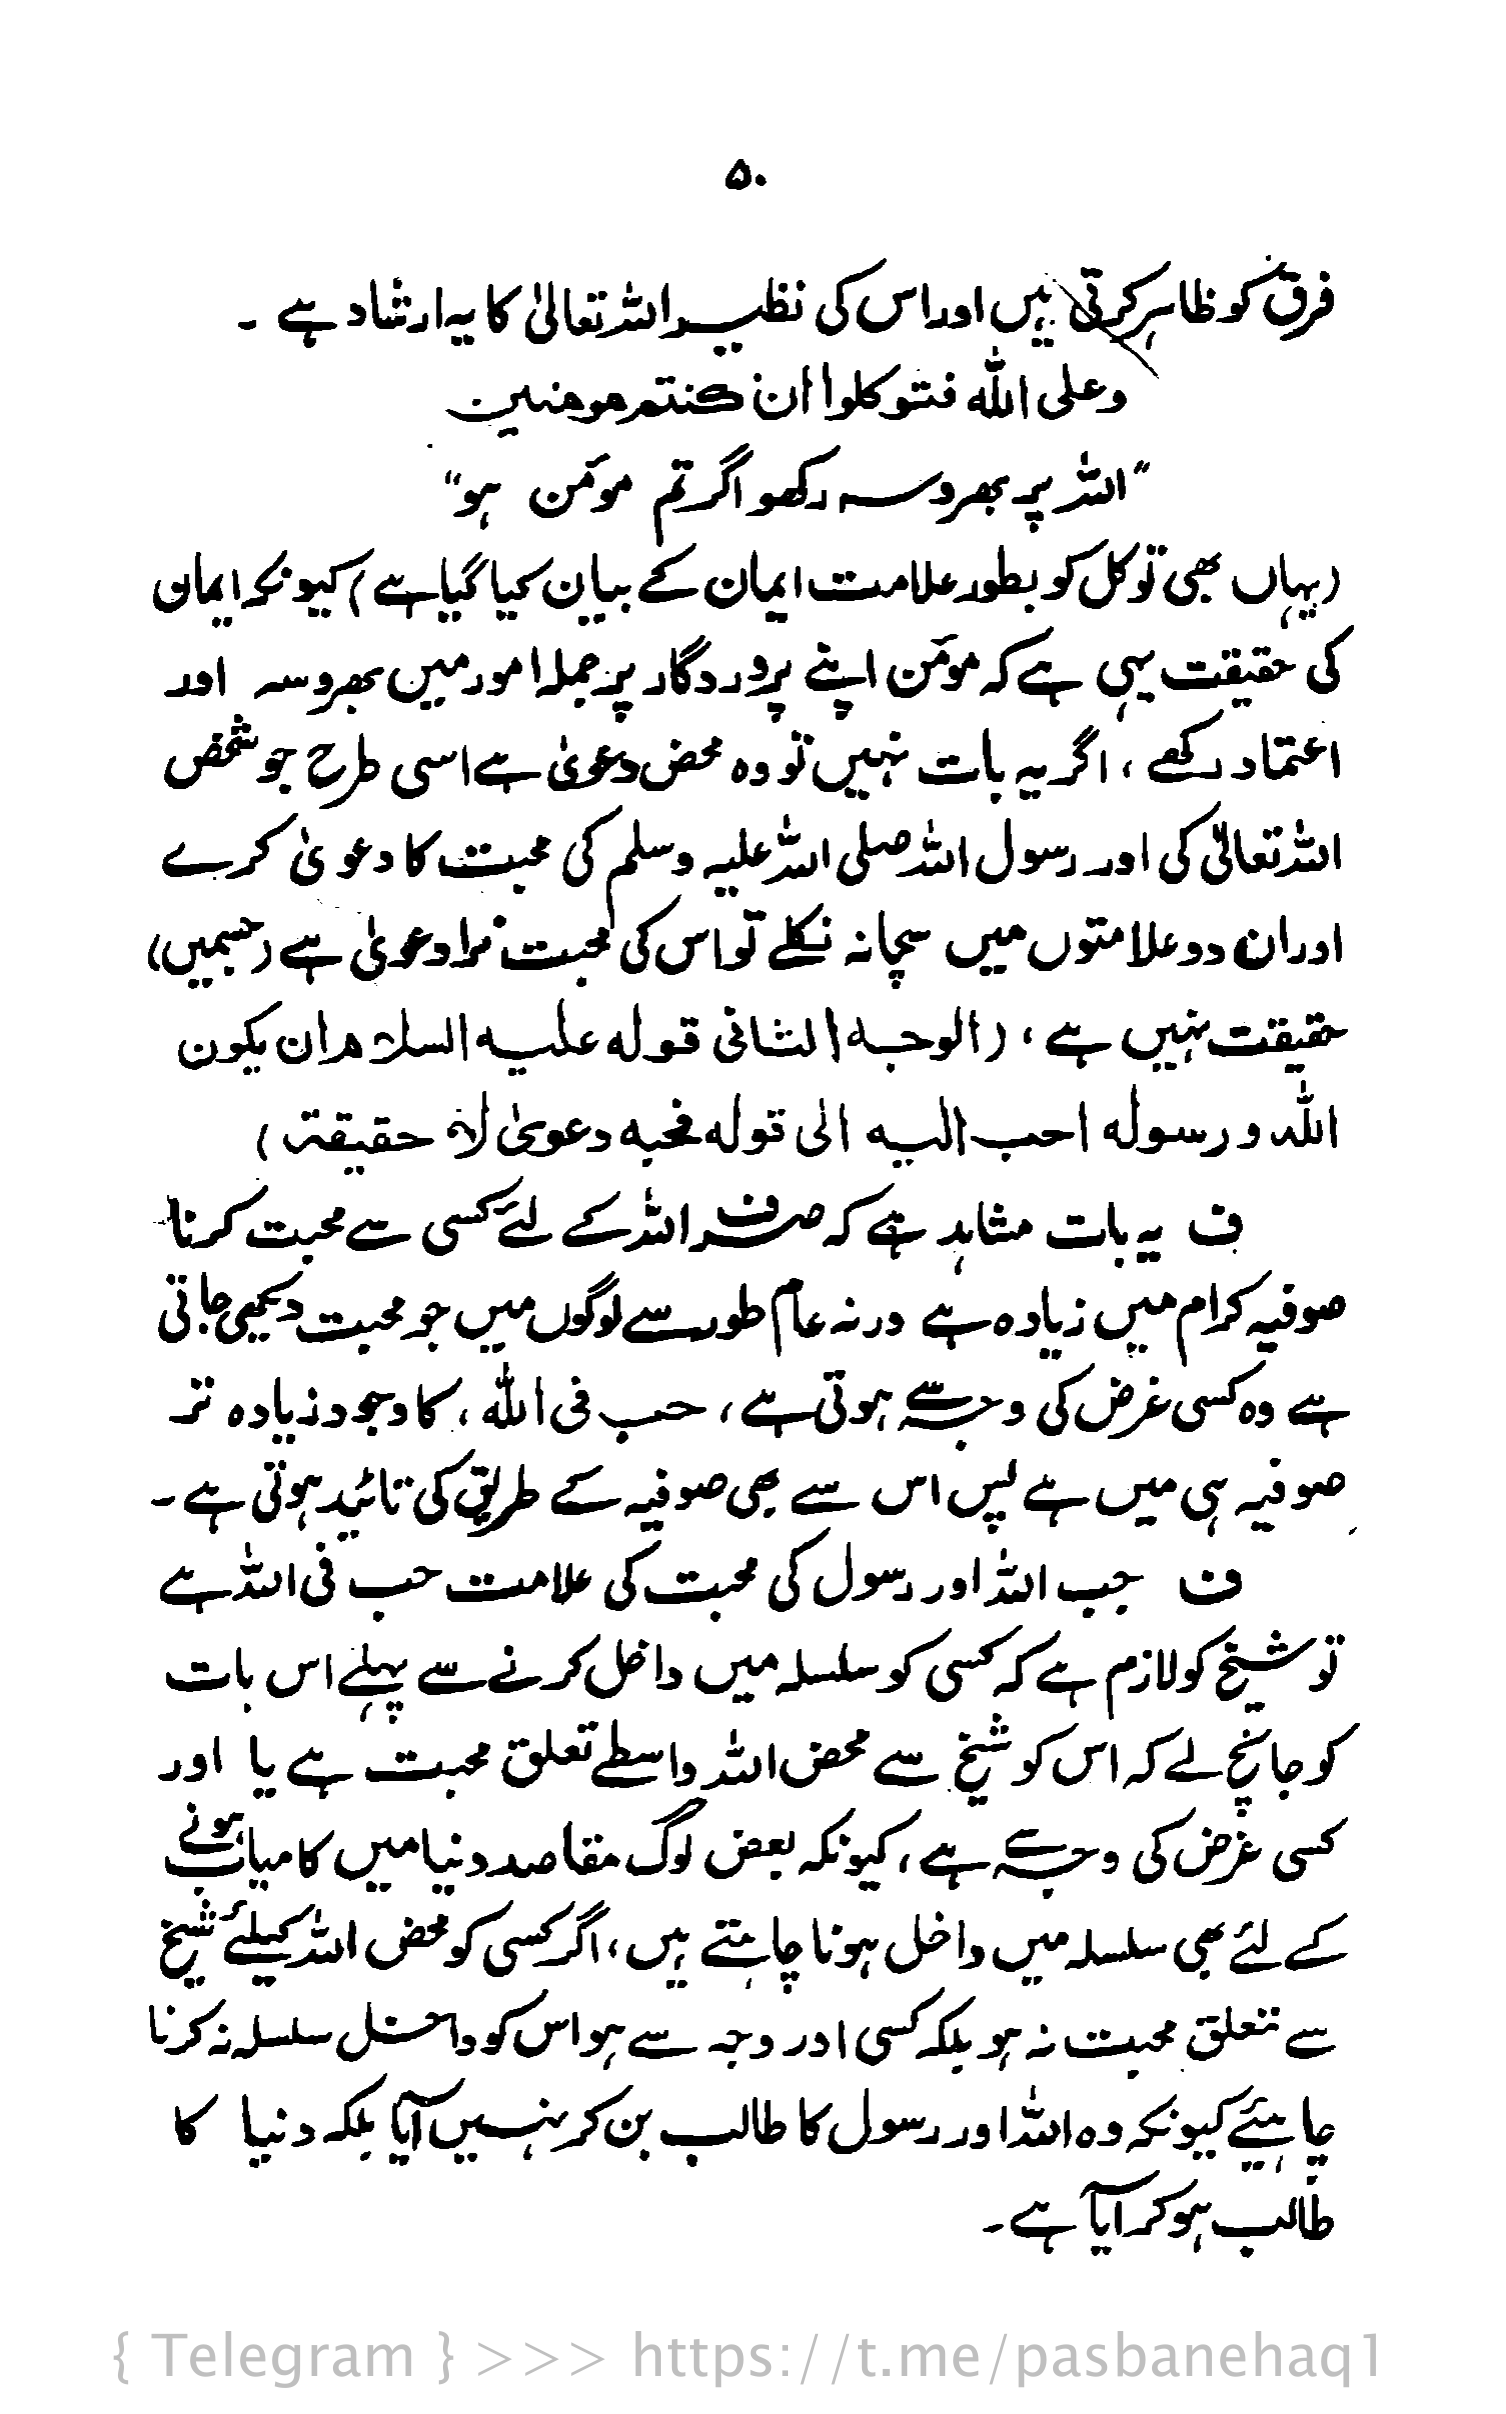 ۵۰
فرق کو ظاہر کرتی ہیں اور اس کی نظیر اللہ تعالیٰ کا یہ ارشاد ہے ۔
وعلی اللہ فتوکلوا ان کنتم مومنین
"اللہ پر بھروسہ رکھو اگر تم مومن ہو"
(یہاں بھی توکل کو بطور علامت ایمان کے بیان کیا گیا ہے) کیونکہ ایمان
کی حقیقت یہی ہے کہ مومن اپنے پروردگار پر جملہ امور میں بھروسہ اور
اعتماد رکھے ، اگر یہ بات نہیں تو وہ محض دعویٰ ہے اسی طرح جو شخص
اللہ تعالیٰ کی اور رسول اللہ صلی اللہ علیہ وسلم کی محبت کا دعویٰ کرے
اور ان دو علامتوں میں سچا نہ نکلے تو اس کی محبت نرا دعویٰ ہے (جسمیں)
حقیقت نہیں ہے ، (الوجہ الثانی قولہ علیہ السلام ان یکون
اللہ و رسولہ احب الیہ الی قولہ فحبہ دعویٰ لا حقیقۃ )
ف یہ بات مشاہد ہے کہ صرف اللہ کے لئے کسی سے محبت کرنا
صوفیہ کرام میں زیادہ ہے ورنہ عام طور سے لوگوں میں جو محبت دیکھی جاتی
ہے وہ کسی غرض کی وجہ سے ہوتی ہے ، حب فی اللہ ، کا وجود زیادہ تر
صوفیہ ہی میں ہے پس اس سے بھی صوفیہ کے طریق کی تائید ہوتی ہے ۔
ف جب اللہ اور رسول کی محبت کی علامت حب فی اللہ ہے
تو شیخ کو لازم ہے کہ کسی کو سلسلہ میں داخل کرنے سے پہلے اس بات
کو جانچ لے کہ اس کو شیخ سے محض اللہ واسطے تعلق محبت ہے یا اور
کسی غرض کی وجہ سے ہے ، کیونکہ بعض لوگ مقاصد دنیا میں کامیاب ہونے
کے لئے بھی سلسلہ میں داخل ہونا چاہتے ہیں ، اگر کسی کو محض اللہ کیلئے شیخ
سے تعلق محبت نہ ہو بلکہ کسی اور وجہ سے ہو اس کو داخل سلسلہ نہ کرنا
چاہیئے کیونکہ وہ اللہ اور رسول کا طالب بن کر نہیں آیا بلکہ دنیا کا
طالب ہو کر آیا ہے ۔
{ Telegram } >>> https://t.me/pasbanehaq1